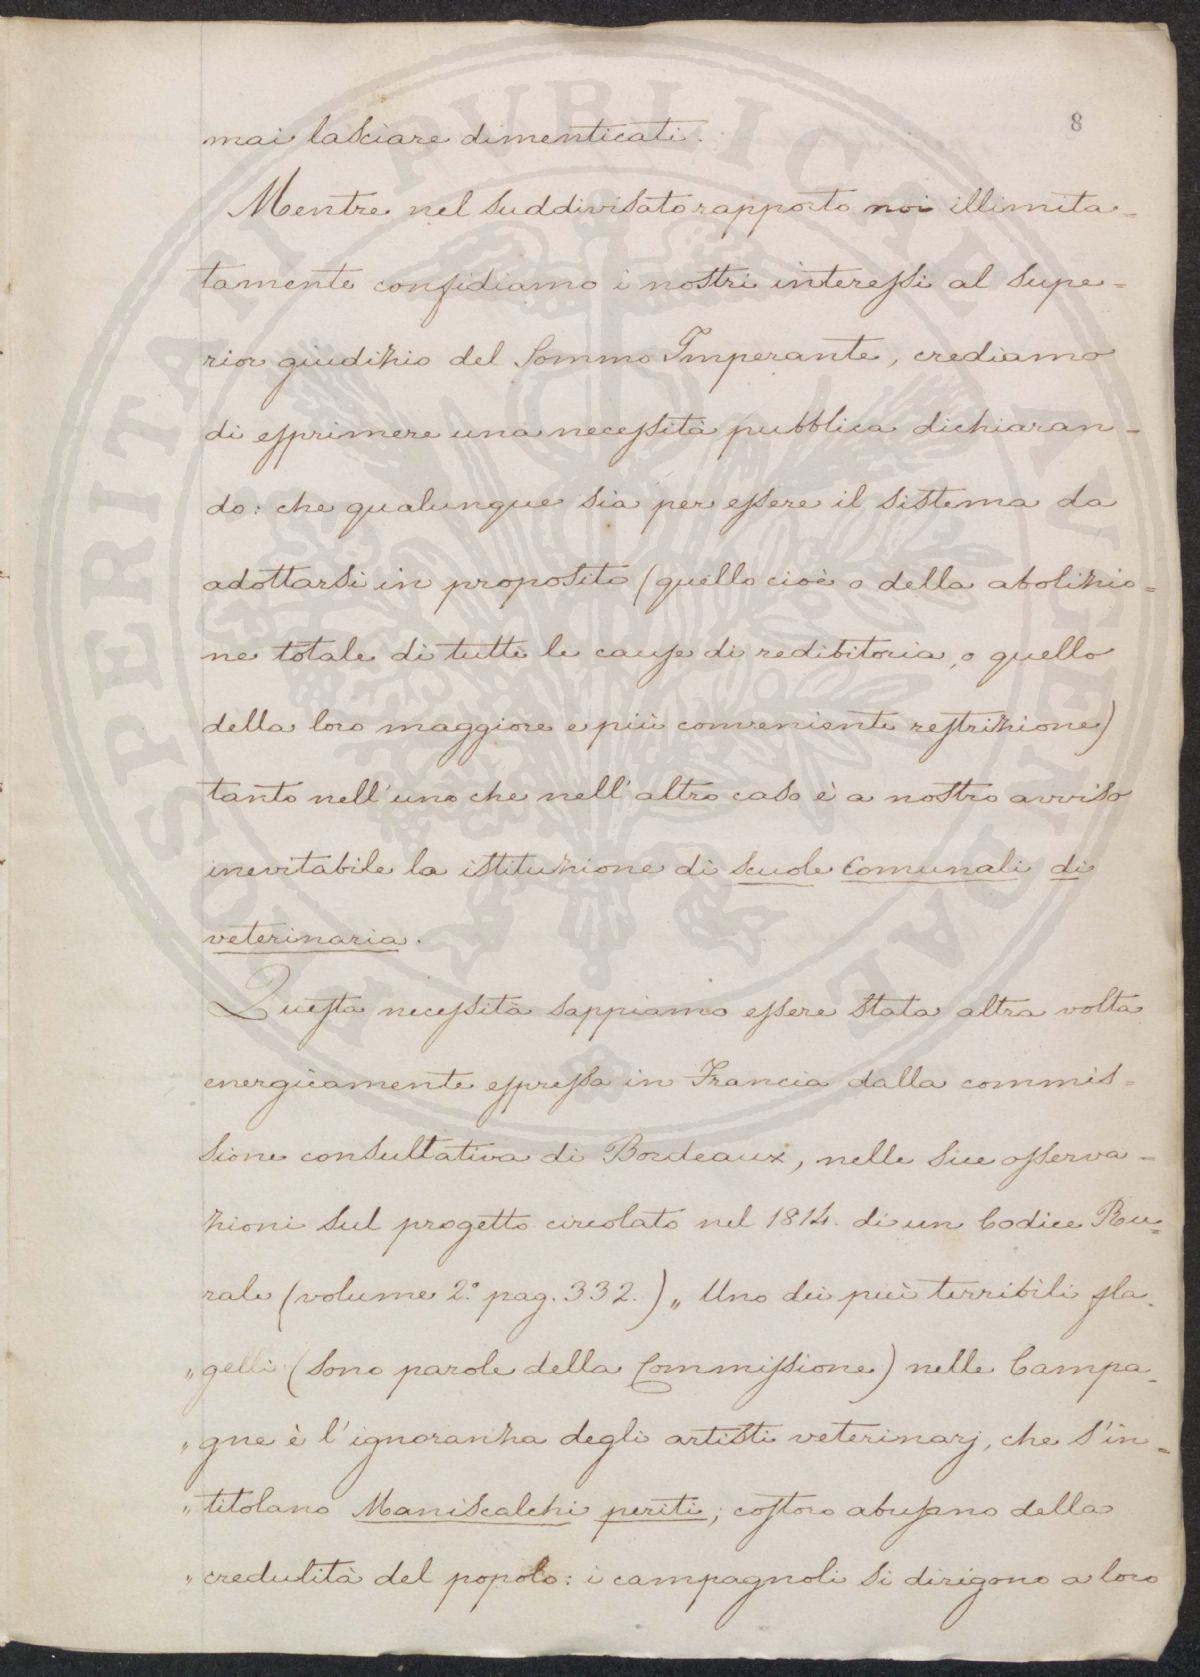 8
mai lasciare dimenticati.
Mentre nel suddivisato rapporto noi illimita=
tamente confidiamo i nostri interessi al supe=
rior giudizio del Sommo Imperante, crediamo
di esprimere una necessità pubblica dichiaran=
do: che qualunque sia per essere il sistema da
adottarsi in proposito (quello cioè o della abolizio=
ne totale di tutte le cause di redibitoria, o quello
della loro maggiore e più conveniente restrizione)
tanto nell'uno che nell'altro caso è a nostro avviso
inevitabile la istituzione di scuole comunali di
veterinaria.
Questa necessità sappiamo essere stata altra volta
energicamente espressa in Francia dalla commis=
sione consultativa di Bordeaux, nelle sue osserva=
zioni sul progetto circolato nel 1814. di un Codice Ru=
rale (volume 2.° pag. 332.) „ Uno dei più terribili fla=
„ gelli (sono parole della Commissione) nelle Campa=
„ gne è l'ignoranza degli artisti veterinarj, che s'in=
„ titolano Maniscalchi periti; costoro abusano della
„ credulità del popolo: i campagnoli si dirigono a loro
PROSPERITATI PUBLICAE AUGENDAE